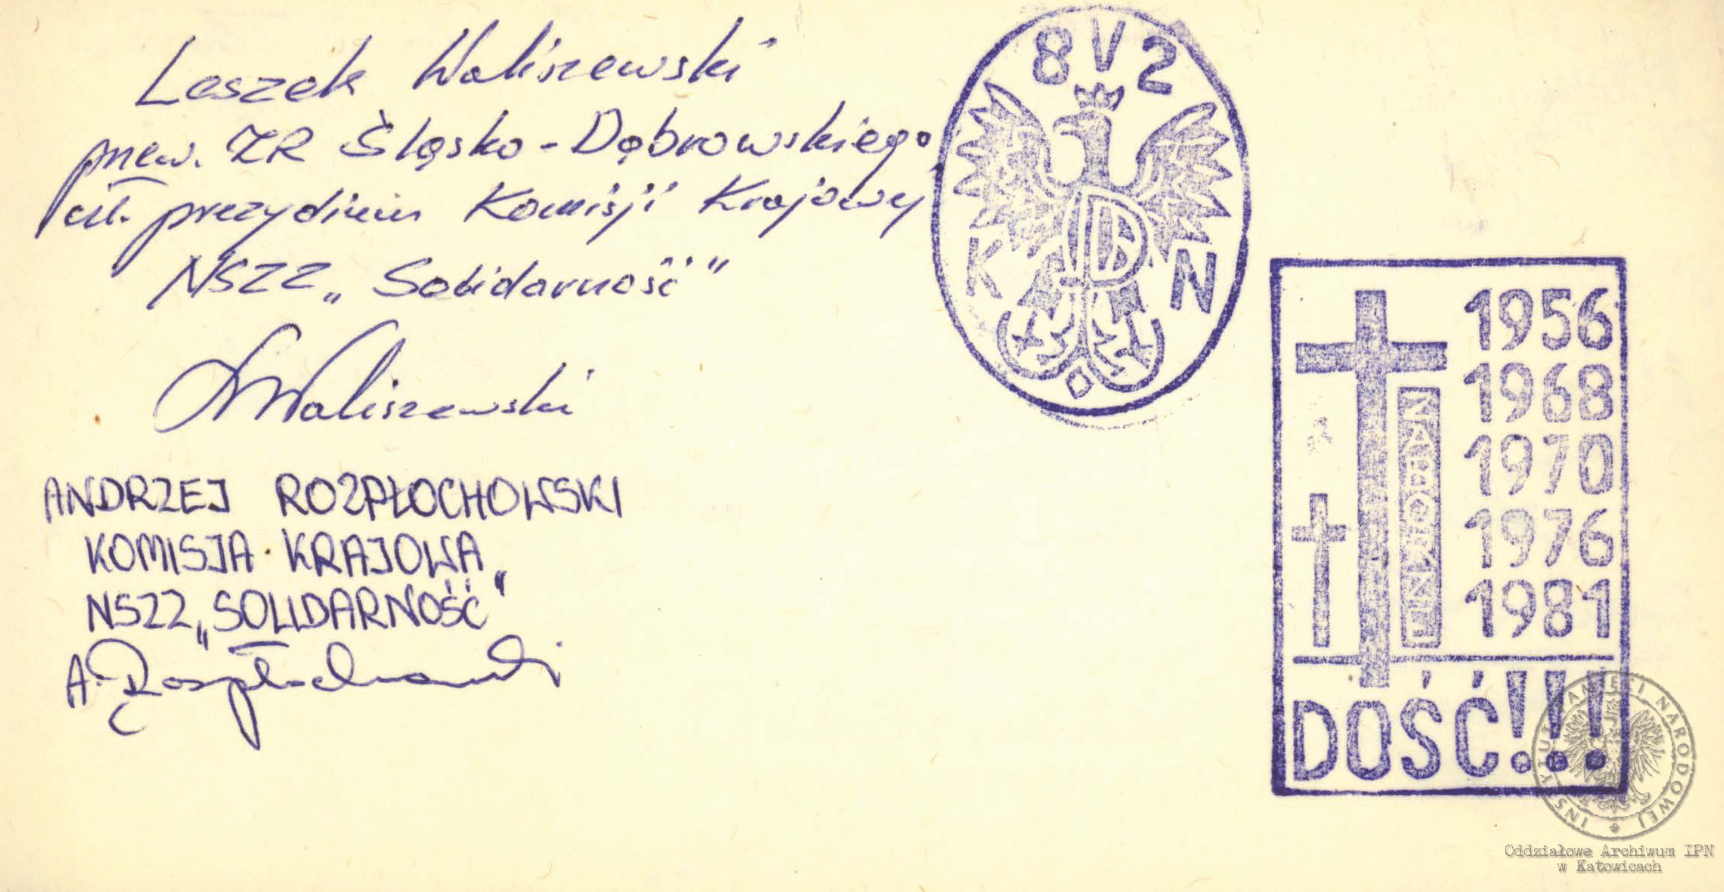 Leszek Waliszewski
przew. ZR Śląsko-Dąbrowskiego,
czł. prezydium Komisji Krajowej
NSZZ „Solidarność”
LWaliszewski
ANDRZEJ ROZPŁOCHOWSKI
KOMISJA KRAJOWA
NSZZ „SOLIDARNOŚĆ”
A. Rozpłochowski
8 V 2
K N
1956
1968
1970
1976
1981
ZABORZE
DOŚĆ!!!
INSTYTUT PAMIĘCI NARODOWEJ
Oddziałowe Archiwum IPN
w Katowicach